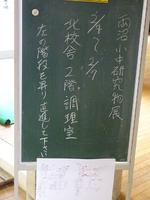 両沼小中研究物展
2/4〜2/7
北校舎2階調理室
左の階段を昇り直進して下さい